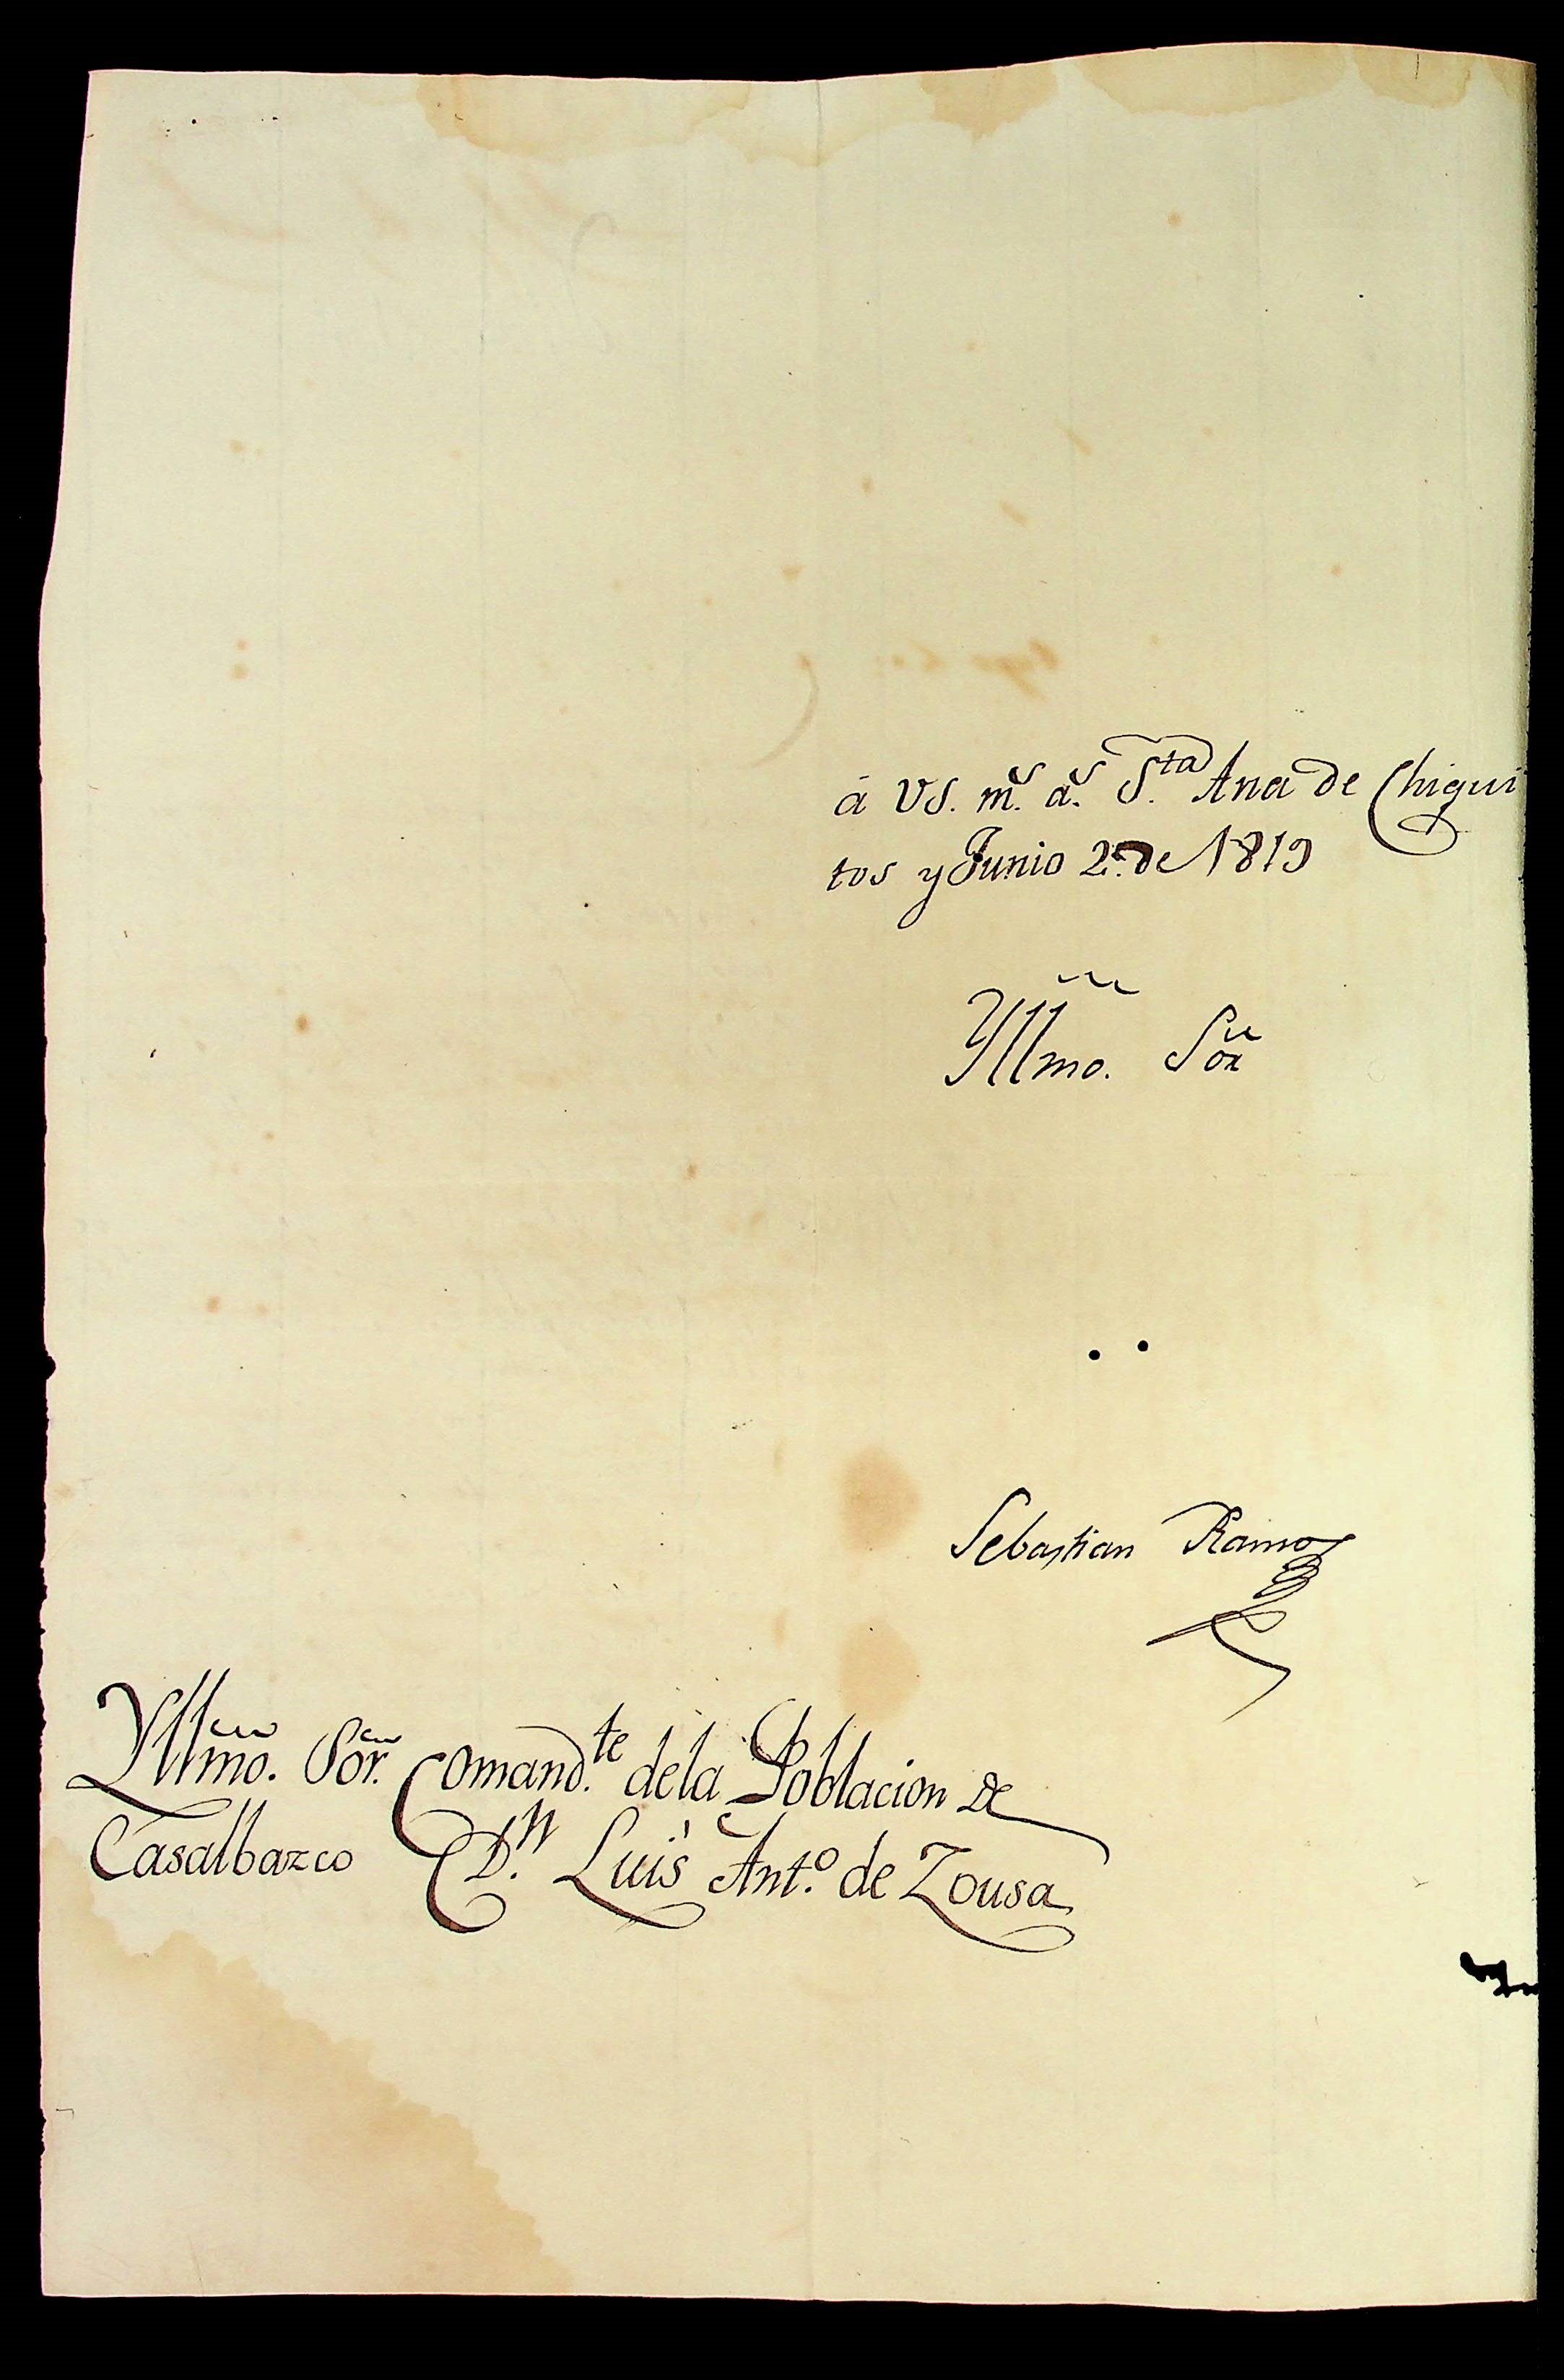 á VS. m.s a.s S.ta Ana de Chiqui
tos y Junio 2. de 1819
Yllmo. Sor
Sebastian Ramos
Yllmo. Sor. Comand.te dela Poblacion de
Casalbazco D.n Luis Ant.o de Zousa